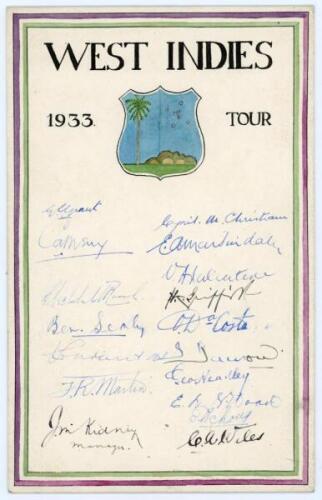 WEST INDIES
1933. TOUR
G C Grant
Cyril. M. Christiani
C A Merry
E A Martindale
V A Valentine
H. Griffith
Ben. Sealy
O C Da Costa
I Barrow.
F. R. Martin
Geo Headley
E. L. G. Hoad
E E Achong
Jim Kidney
manager.
C. A. Wiles